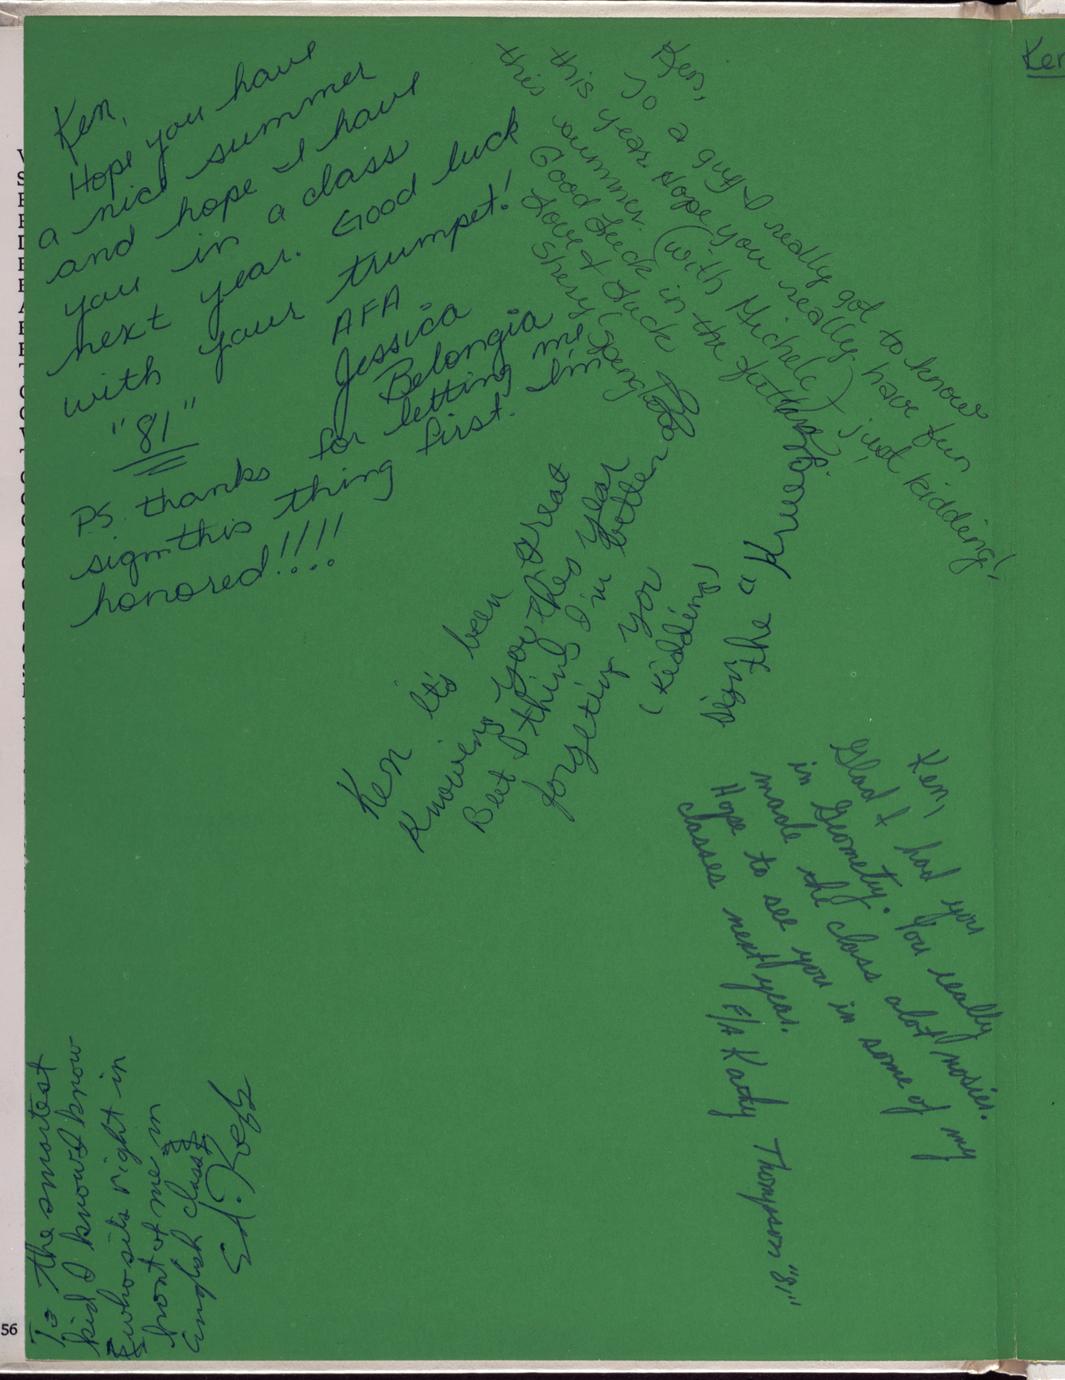 Ken,
Hope you have
a nice summer
and hope I have
you in a class
next year. Good luck
with your trumpet!
AFA
Jessica
Belongia
"81"
PS. thanks for letting me
sign this thing first. I'm
honored!!!!
Ken,
To a guy I really got to know
this year. Hope you really have fun
this summer. (with Michele) just kidding!
Good Luck in the future
Love & Luck
Shery Spengler
Ken it's been great
Knowing you this year
But I think I'm better
forgeting you
(kidding)
Sign the "
Ken,
Glad I had you
in Geometry. You really
made the class alot nosier.
Hope to see you in some of my
classes next year.
F/A Kathy Thompson "81"
To the smartest
kid I know & know
who sits right in
front of me in
English class
Ed.
Ken
56